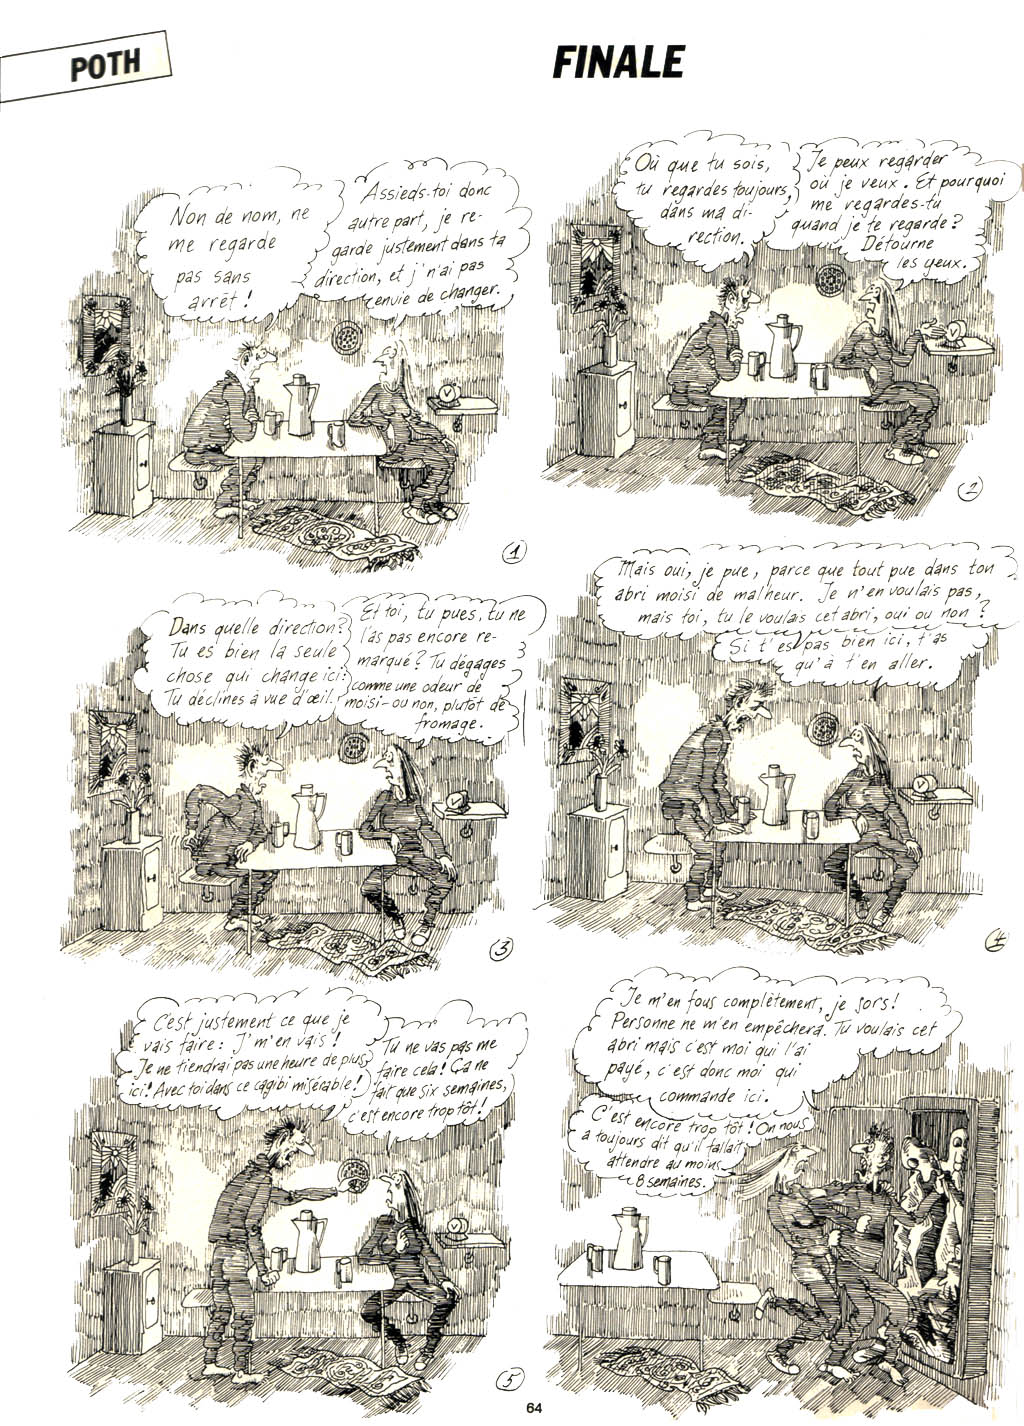 POTH
FINALE
Non de nom, ne
me regarde
pas sans
arrêt !
Assieds-toi donc
autre part, je re-
garde justement dans ta
direction, et j'n'ai pas
envie de changer.
1
Où que tu sois,
tu regardes toujours
dans ma di-
rection.
Je peux regarder
où je veux. Et pourquoi
me regardes-tu
quand je te regarde ?
Détourne
les yeux.
2
Dans quelle direction?
Tu es bien la seule
chose qui change ici:
Tu déclines à vue d'œil.
Et toi, tu pues, tu ne
l'as pas encore re-
marqué ? Tu dégages
comme une odeur de
moisi-ou non, plutôt de
fromage.
3
Mais oui, je pue, parce que tout pue dans ton
abri moisi de malheur. Je n'en voulais pas,
mais toi, tu le voulais cet abri, oui ou non ?
Si t'es pas bien ici, t'as
qu'à t'en aller.
4
C'est justement ce que je
vais faire: J'm'en vais !
Je ne tiendrai pas une heure de plus
ici! Avec toi dans ce cagibi misérable !
Tu ne vas pas me
faire cela! Ça ne
fait que six semaines,
c'est encore trop tôt !
5
Je m'en fous complètement, je sors !
Personne ne m'en empêchera. Tu voulais cet
abri mais c'est moi qui l'ai
payé, c'est donc moi qui
commande ici.
C'est encore trop tôt ! On nous
a toujours dit qu'il fallait
attendre au moins
8 semaines.
64